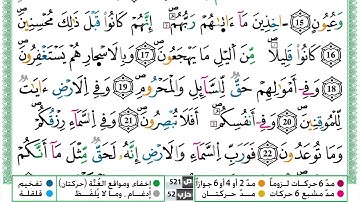 وَعُيُونٍ ⑮ ءَاخِذِينَ مَآ ءَاتَىٰهُمْ رَبُّهُمْۚ إِنَّهُمْ كَانُوا۟ قَبْلَ ذَٰلِكَ مُحْسِنِينَ
⑯ كَانُوا۟ قَلِيلًا مِّنَ ٱلَّيْلِ مَا يَهْجَعُونَ ⑰ وَبِٱلْأَسْحَارِ هُمْ يَسْتَغْفِرُونَ
⑱ وَفِىٓ أَمْوَٰلِهِمْ حَقٌّ لِّلسَّآئِلِ وَٱلْمَحْرُومِ ⑲ وَفِى ٱلْأَرْضِ ءَايَٰتٌ
لِّلْمُوقِنِينَ ⑳ وَفِىٓ أَنفُسِكُمْۚ أَفَلَا تُبْصِرُونَ ㉑ وَفِى ٱلسَّمَآءِ رِزْقُكُمْ
وَمَا تُوعَدُونَ ㉒ فَوَرَبِّ ٱلسَّمَآءِ وَٱلْأَرْضِ إِنَّهُۥ لَحَقٌّ مِّثْلَ مَآ أَنَّكُمْ
مدّ 6 حركات لزوماً مدّ 2 أو 4 أو 6 جوازاً ص 521 إخفاء، ومواقع الغُنَّة (حركتان) تفخيم
مدّ مشبع 6 حركات مدّ حركتان حزب 52 إدغام، وما لا يُلفَظ قلقلة